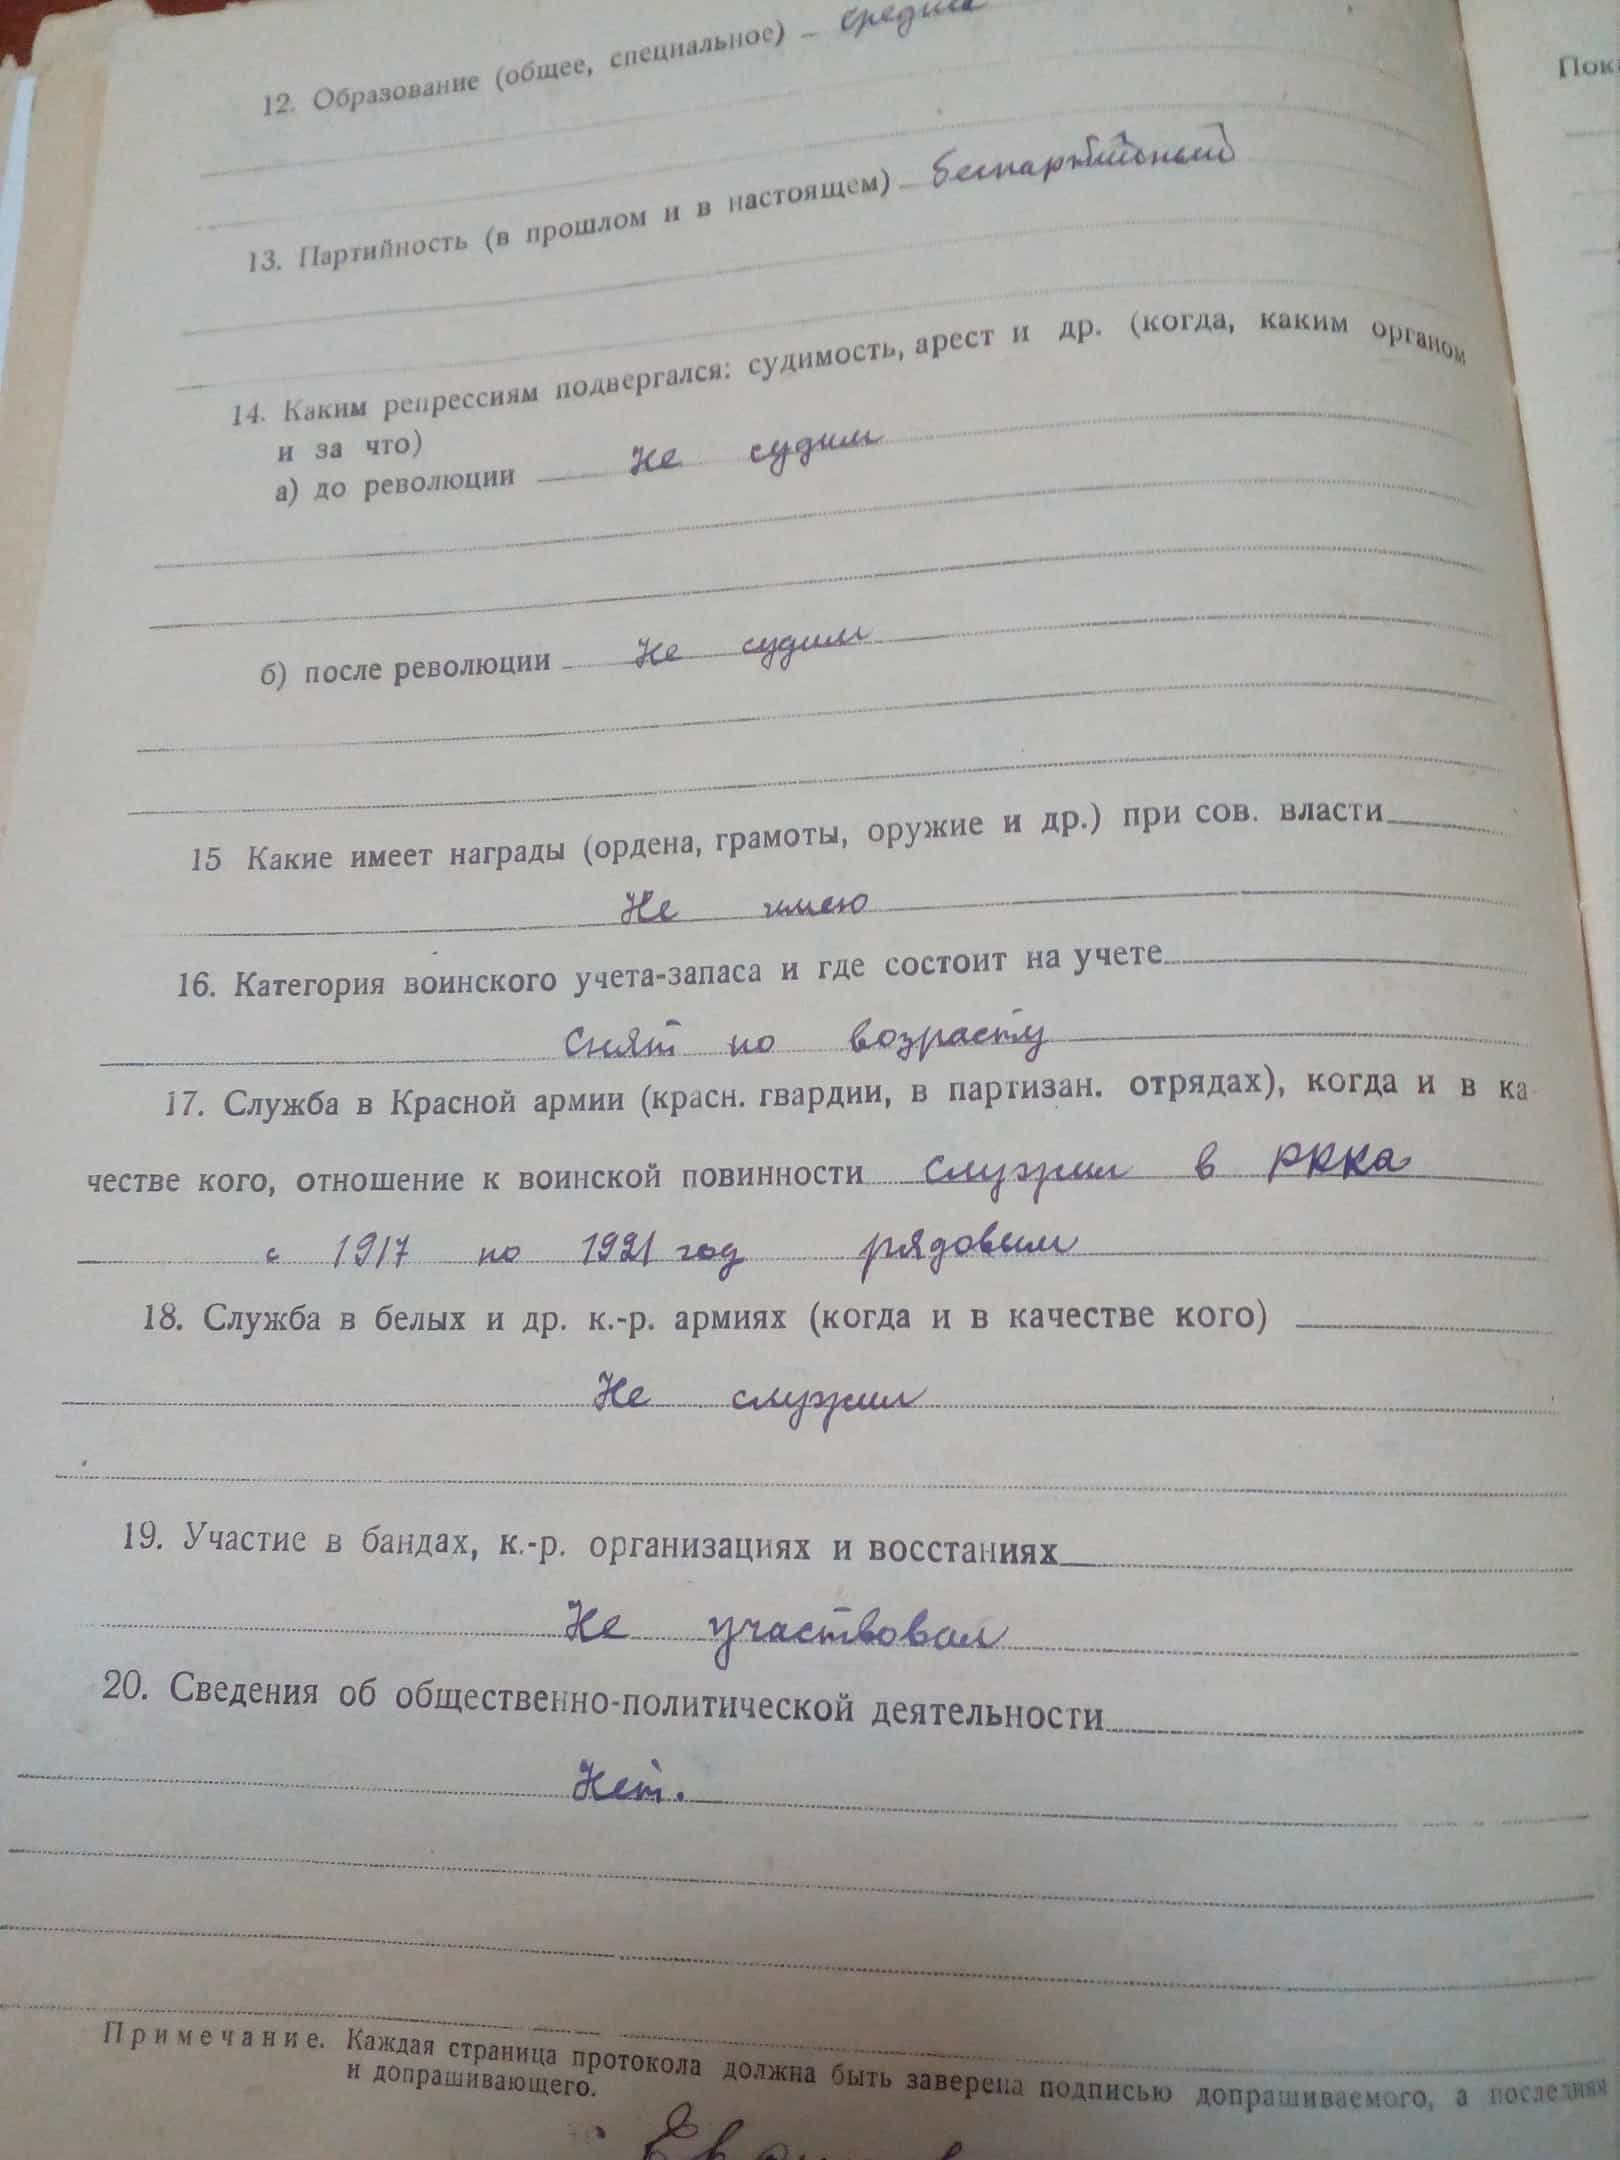 12. Образование (общее, специальное) – средне
13. Партийность (в прошлом и в настоящем) беспартийный
14. Каким репрессиям подвергался: судимость, арест и др. (когда, каким органом
и за что)
а) до революции Не судим
б) после революции Не судим
15 Какие имеет награды (ордена, грамоты, оружие и др.) при сов. власти
Не имею
16. Категория воинского учета-запаса и где состоит на учете
Снят по возрасту
17. Служба в Красной армии (красн. гвардии, в партизан. отрядах), когда и в ка-
честве кого, отношение к воинской повинности служил в РККА
с 1917 по 1921 год рядовым
18. Служба в белых и др. к.-р. армиях (когда и в качестве кого)
Не служил
19. Участие в бандах, к.-р. организациях и восстаниях
Не участвовал
20. Сведения об общественно-политической деятельности
Нет.
Примечание. Каждая страница протокола должна быть заверена подписью допрашиваемого, а последняя
и допрашивающего.
Пок